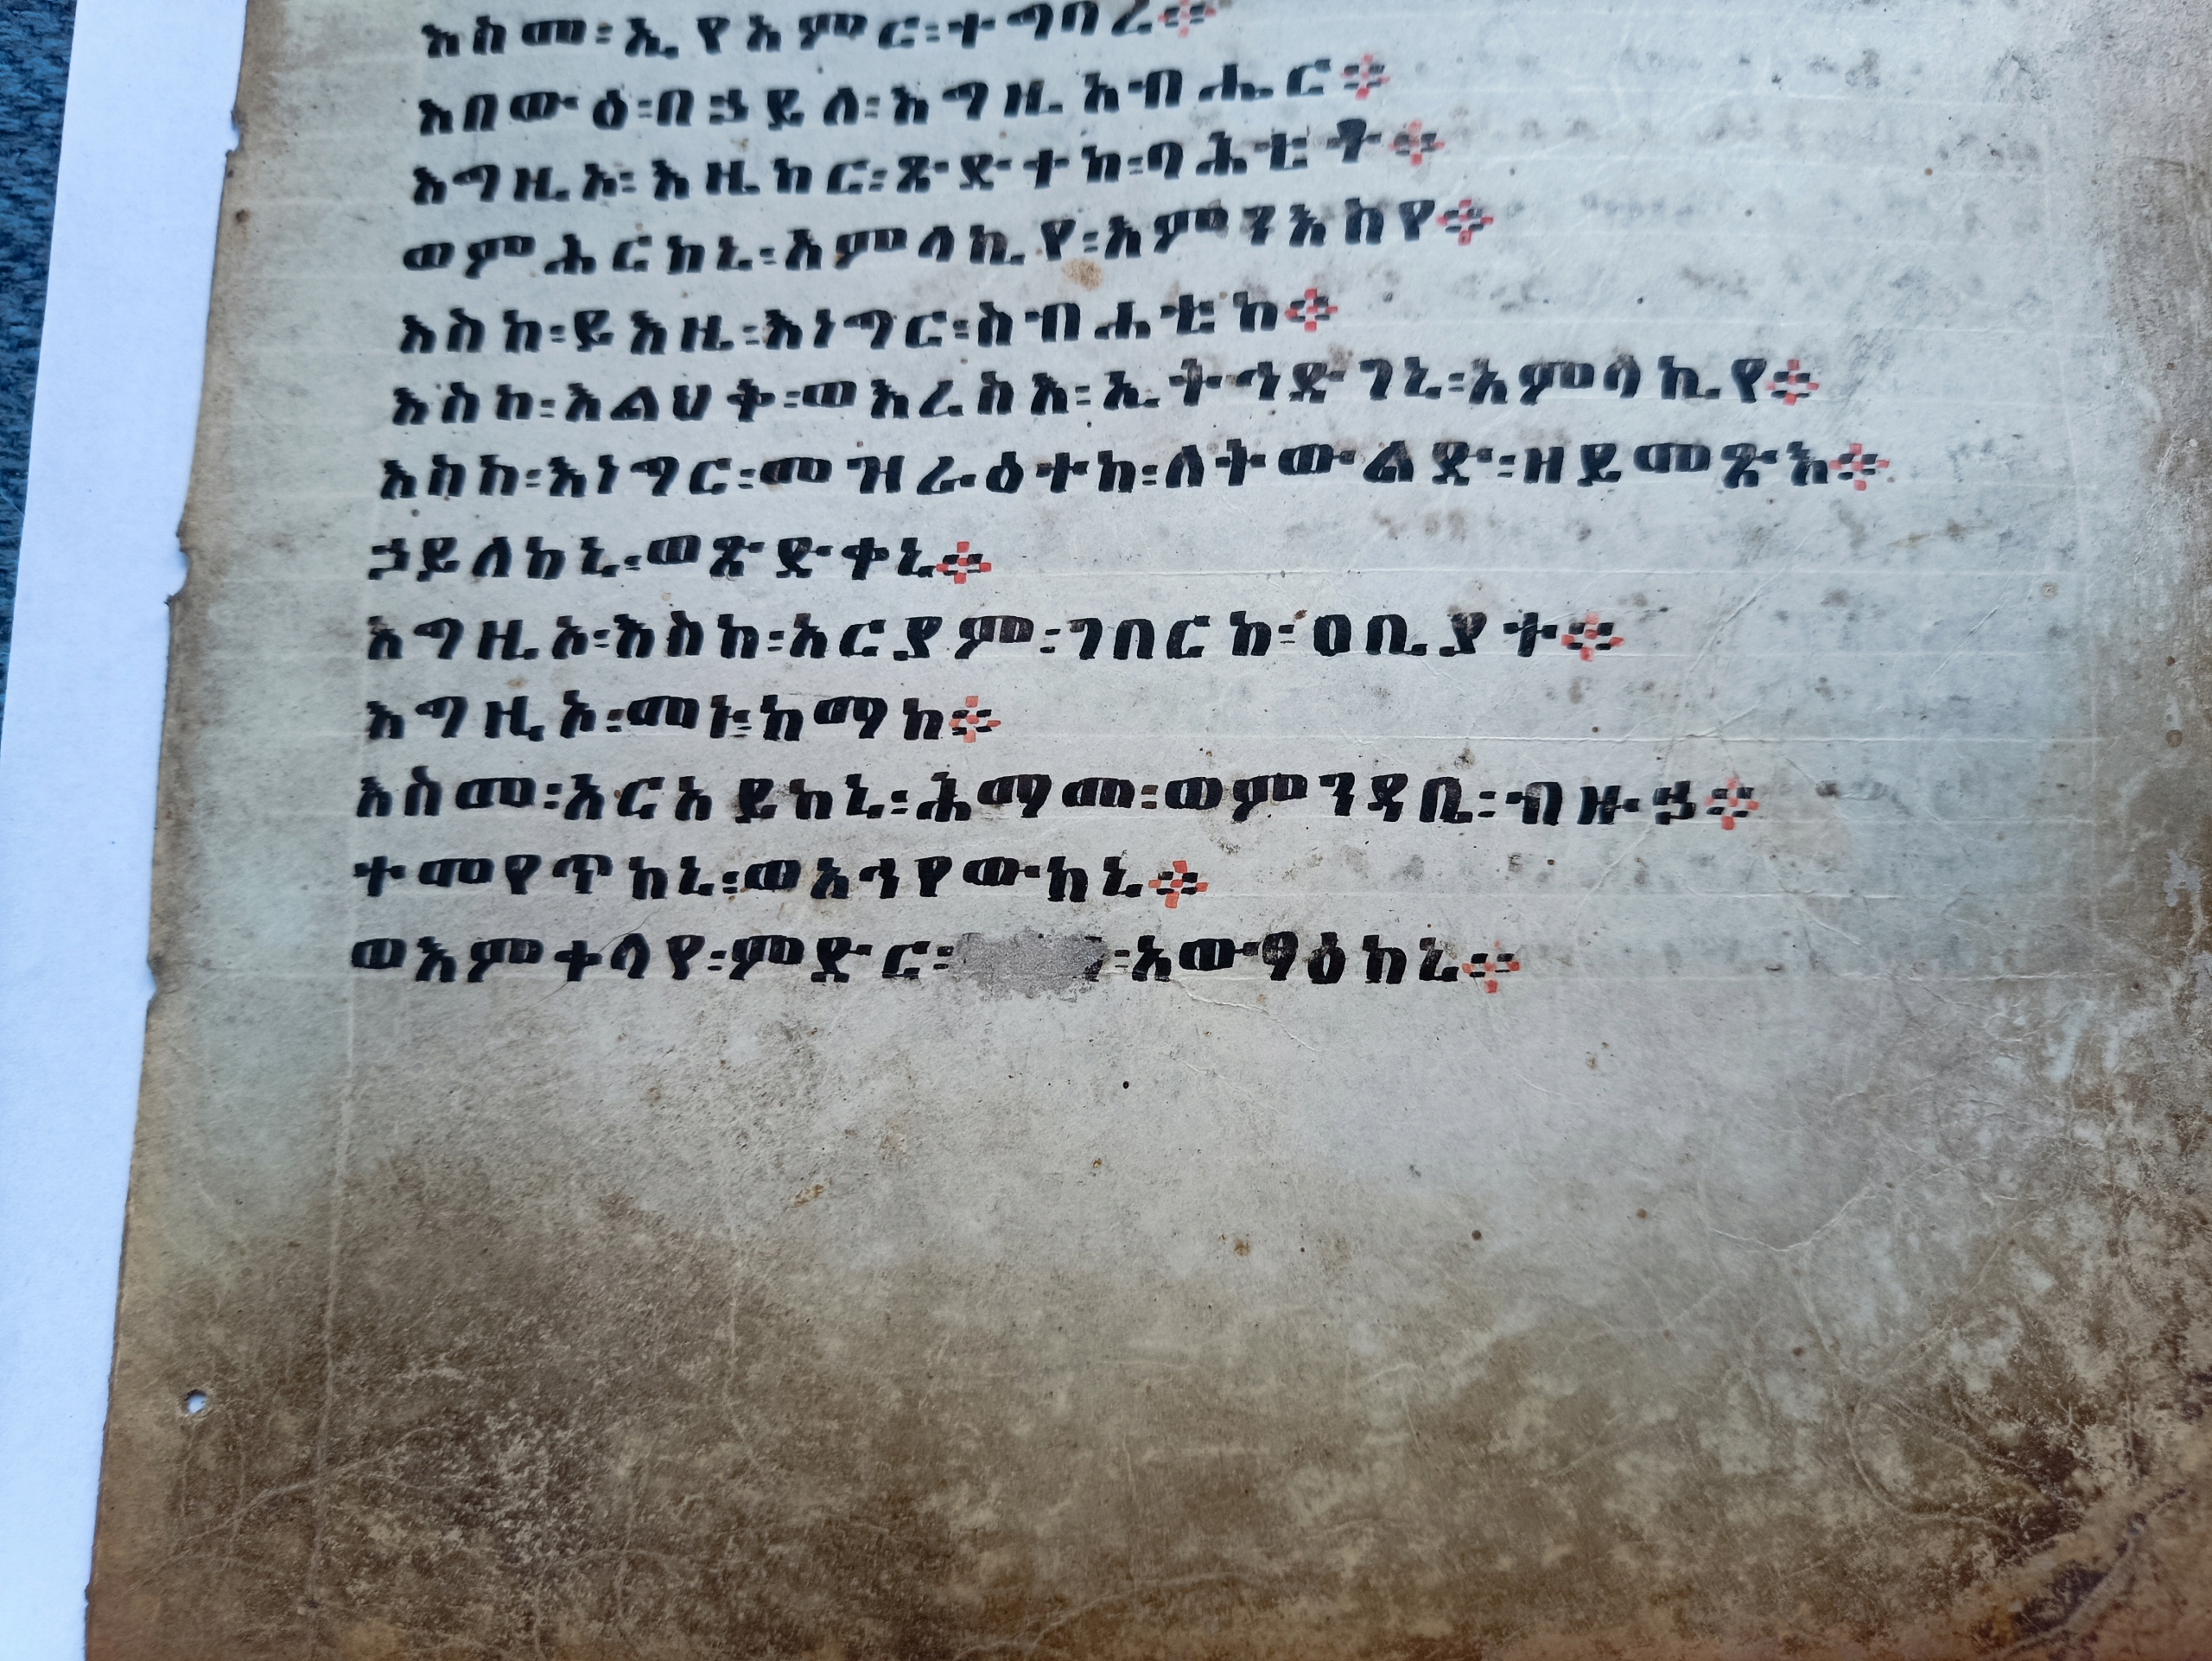 እስመ፡ኢየአምር፡ተግባረ፨
እበውዕ፡በኃይለ፡እግዚአብሔር፨
እግዚኦ፡እዜከር፡ጽድተከ፡ባሕቲቶ፨
ወምሕርከኒ፡አምላኪየ፡እምንእስየ፨
እስከ፡ይእዜ፡እነግር፡ስብሐቲከ፨
እስከ፡እልህቅ፡ወእረስእ፡ኢትኅድገኒ፡አምላኪየ፨
እስከ፡እነግር፡መዝራዕተከ፡ለትውልድ፡ዘይመጽእ፨
ኃይለከኒ፡ወጽድቀኒ፨
እግዚኦ፡እስከ፡አርያም፡ገበርከ፡ዐቢያተ፨
እግዚኦ፡መኑ፡ከማከ፨
እስመ፡አርአይከኒ፡ሕማመ፡ወምንዳቤ፡ብዙኃ፨
ተመየጥከኒ፡ወአኅየውከኒ፨
ወእምቀላየ፡ምድር፡ ፡አውፃዕከኒ፨